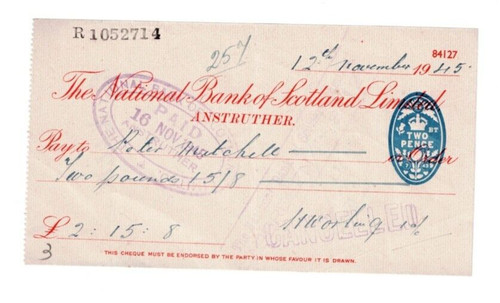 R 1052714
257
84127
12th November 1945.
The National Bank of Scotland Limited
ANSTRUTHER.
PAID
16 NOV
ANSTRUTHER
TWO PENCE
Pay to Peter Mitchell or Order
Two pounds 15/8
£ 2 : 15 : 8
CANCELLED
3
THIS CHEQUE MUST BE ENDORSED BY THE PARTY IN WHOSE FAVOUR IT IS DRAWN.